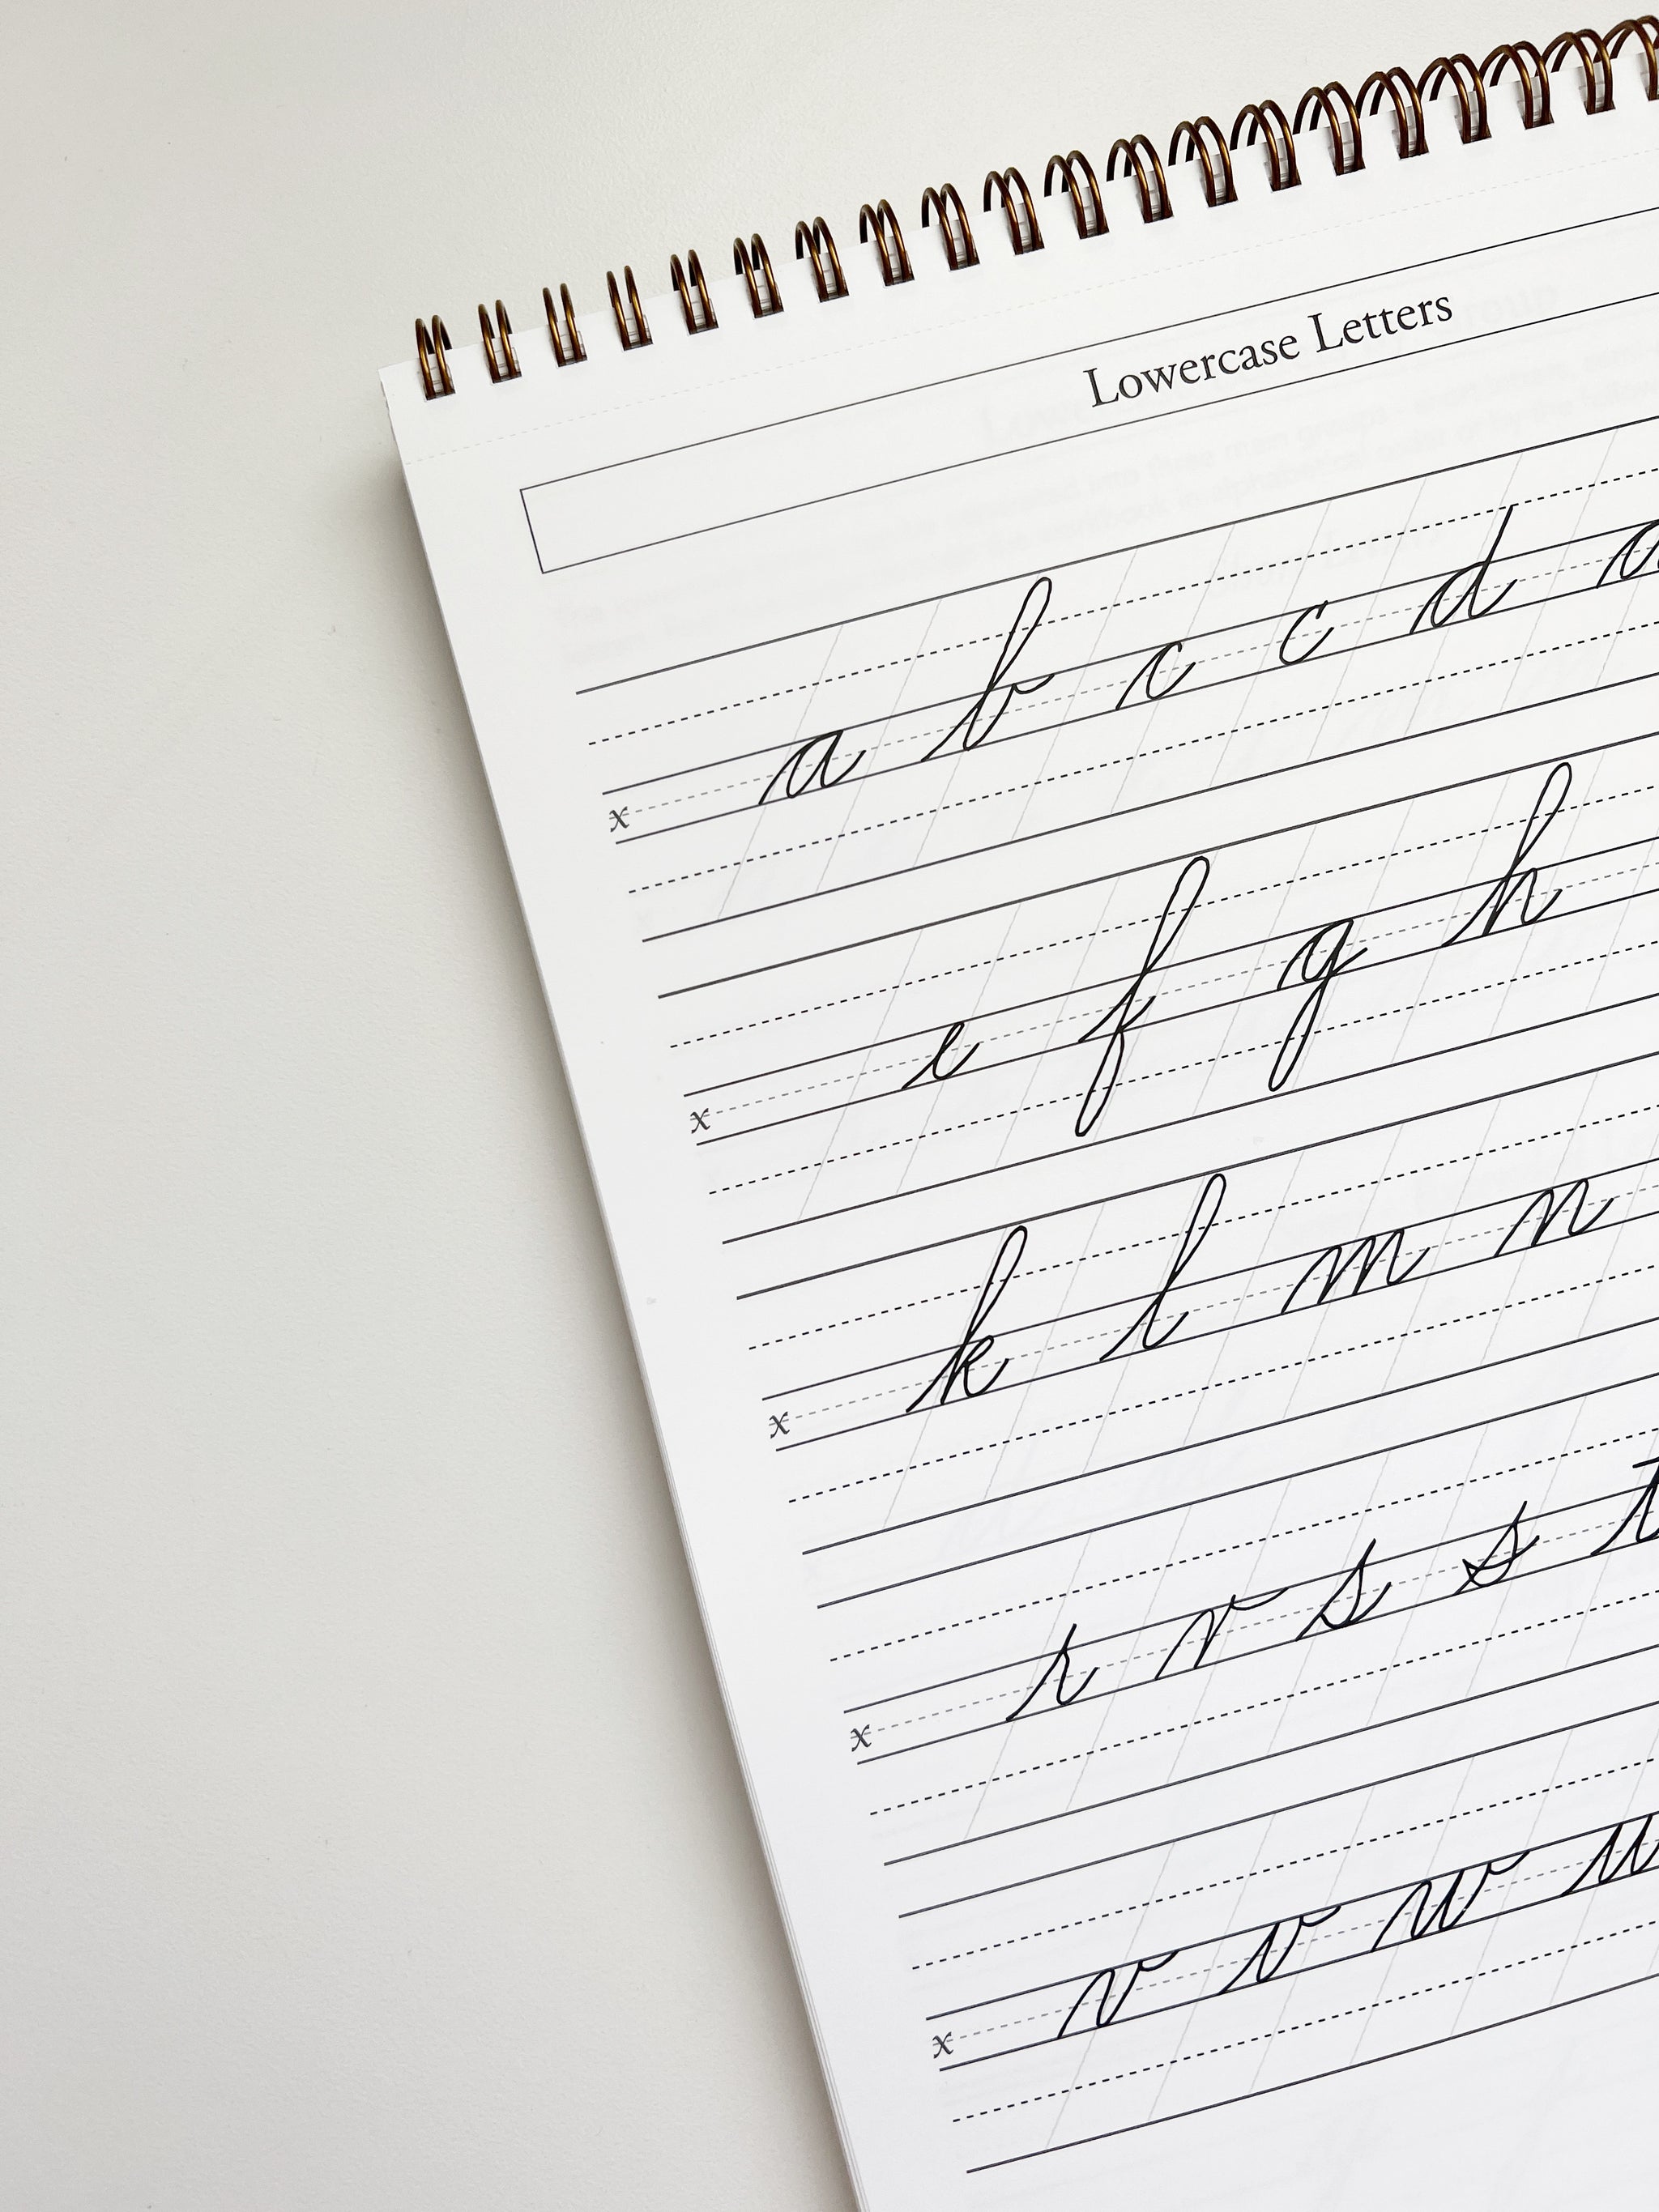 Lowercase Letters
x a b c c d
x e f g h
x k l m n
x r r s s t
x v v w